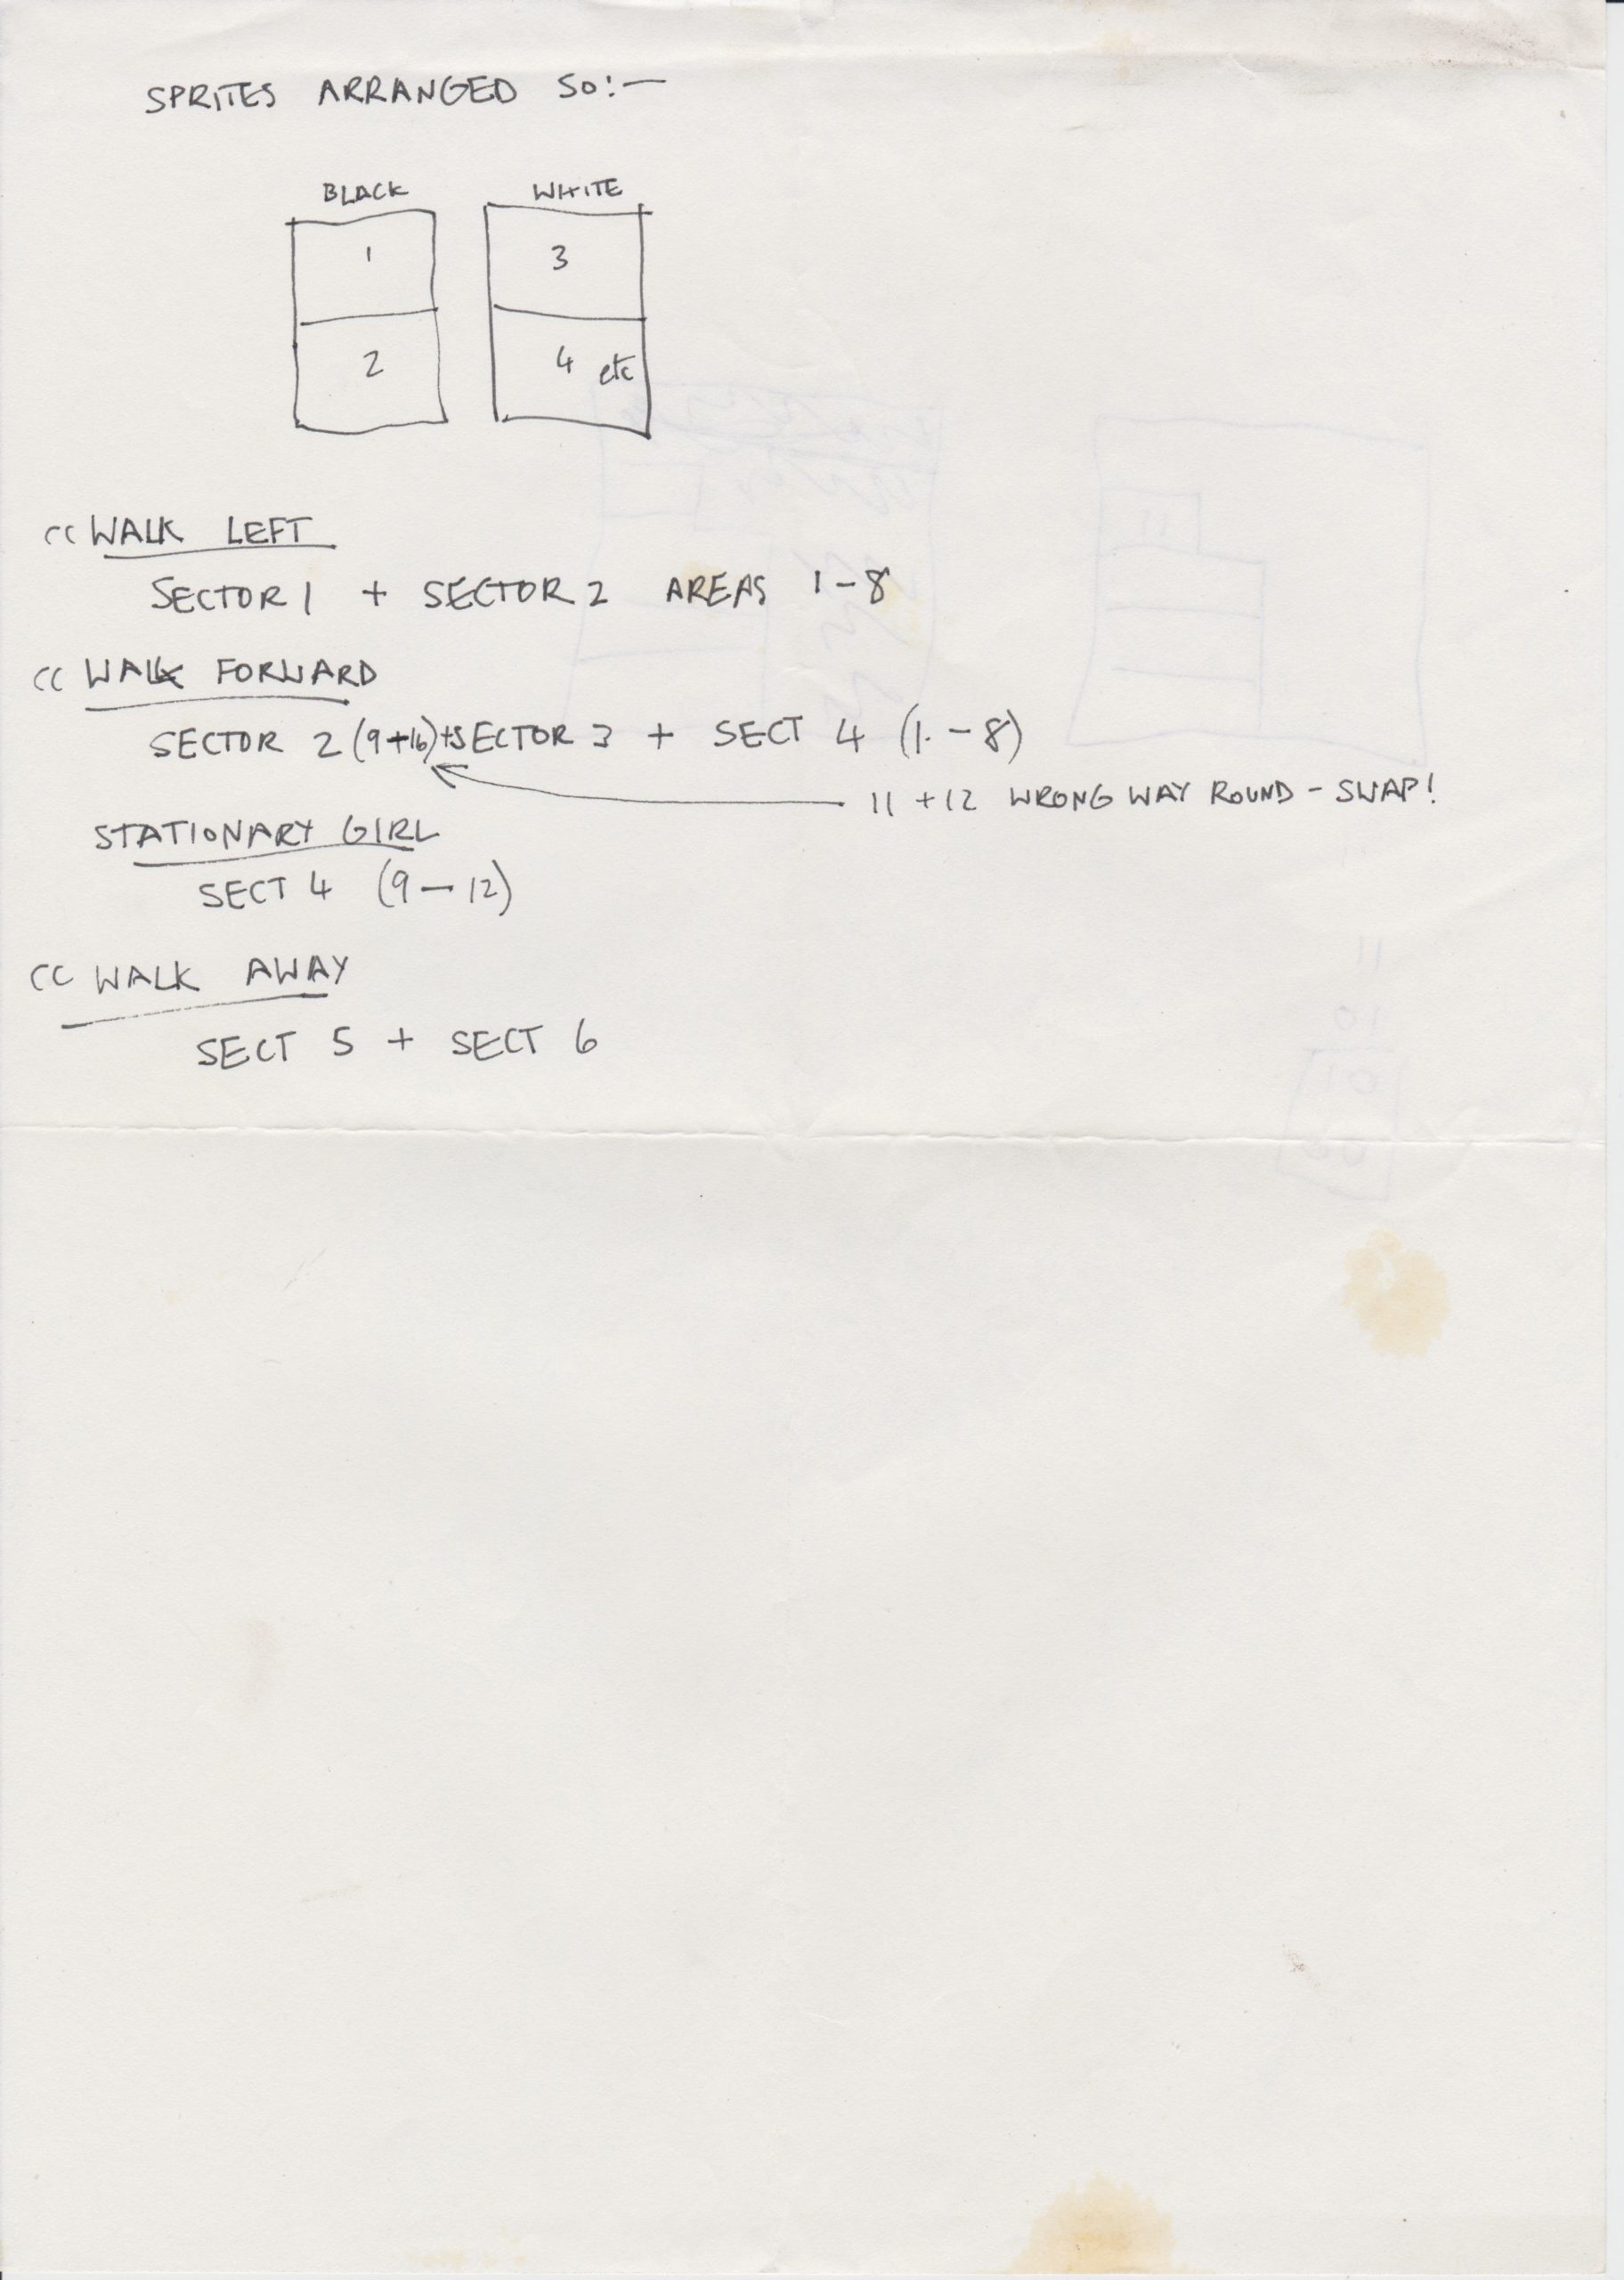 SPRITES ARRANGED SO:-
BLACK WHITE
1 3
2 4 etc
CC WALK LEFT
SECTOR 1 + SECTOR 2 AREAS 1-8
CC WALK FORWARD
SECTOR 2 (9+16)+SECTOR 3 + SECT 4 (1-8)
11 +12 WRONG WAY ROUND - SWAP!
STATIONARY GIRL
SECT 4 (9-12)
CC WALK AWAY
SECT 5 + SECT 6